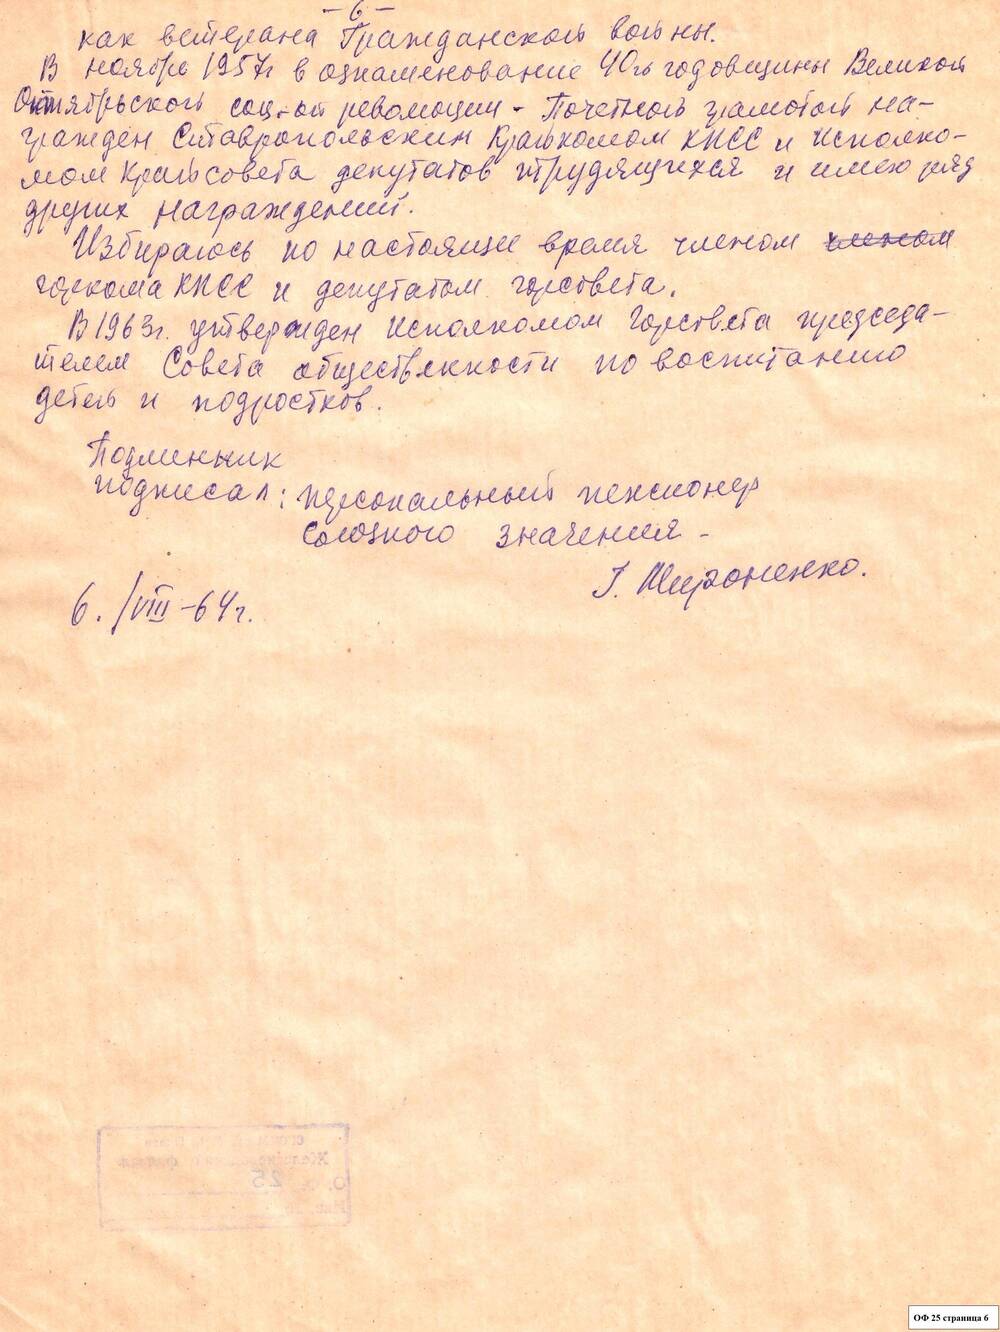 - 6 -
как ветерана Гражданской войны.
В ноябре 1957г в ознаменование 40й годовщины Великой
Октябрьской соц-ой революции - Почетной грамотой на-
гражден Ставропольским Крайкомом КПСС и Исполко-
мом Крайсовета депутатов трудящихся и имею ряд
других награждений.
Избираюсь по настоящие время членом членом
горкома КПСС и депутатом горсовета.
В 1963г. утвержден Исполкомом Горсовета председа-
телем Совета общественности по воспитанию
детей и подростков.
Подлинник
подписал: персональный пенсионер
союзного значения -
Г. Мироненко.
6./VIII-64г.
филиал
25
ОФ 25 страница 6